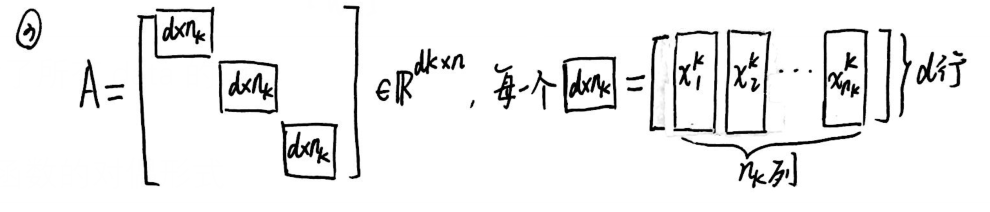 ③
A = [ d×nₖ d×nₖ d×nₖ ] ∈ ℝ^{dk×n}, 每一个 d×nₖ = [ x₁ᵏ x₂ᵏ ⋯ x_{nₖ}ᵏ ] } d行
nₖ列